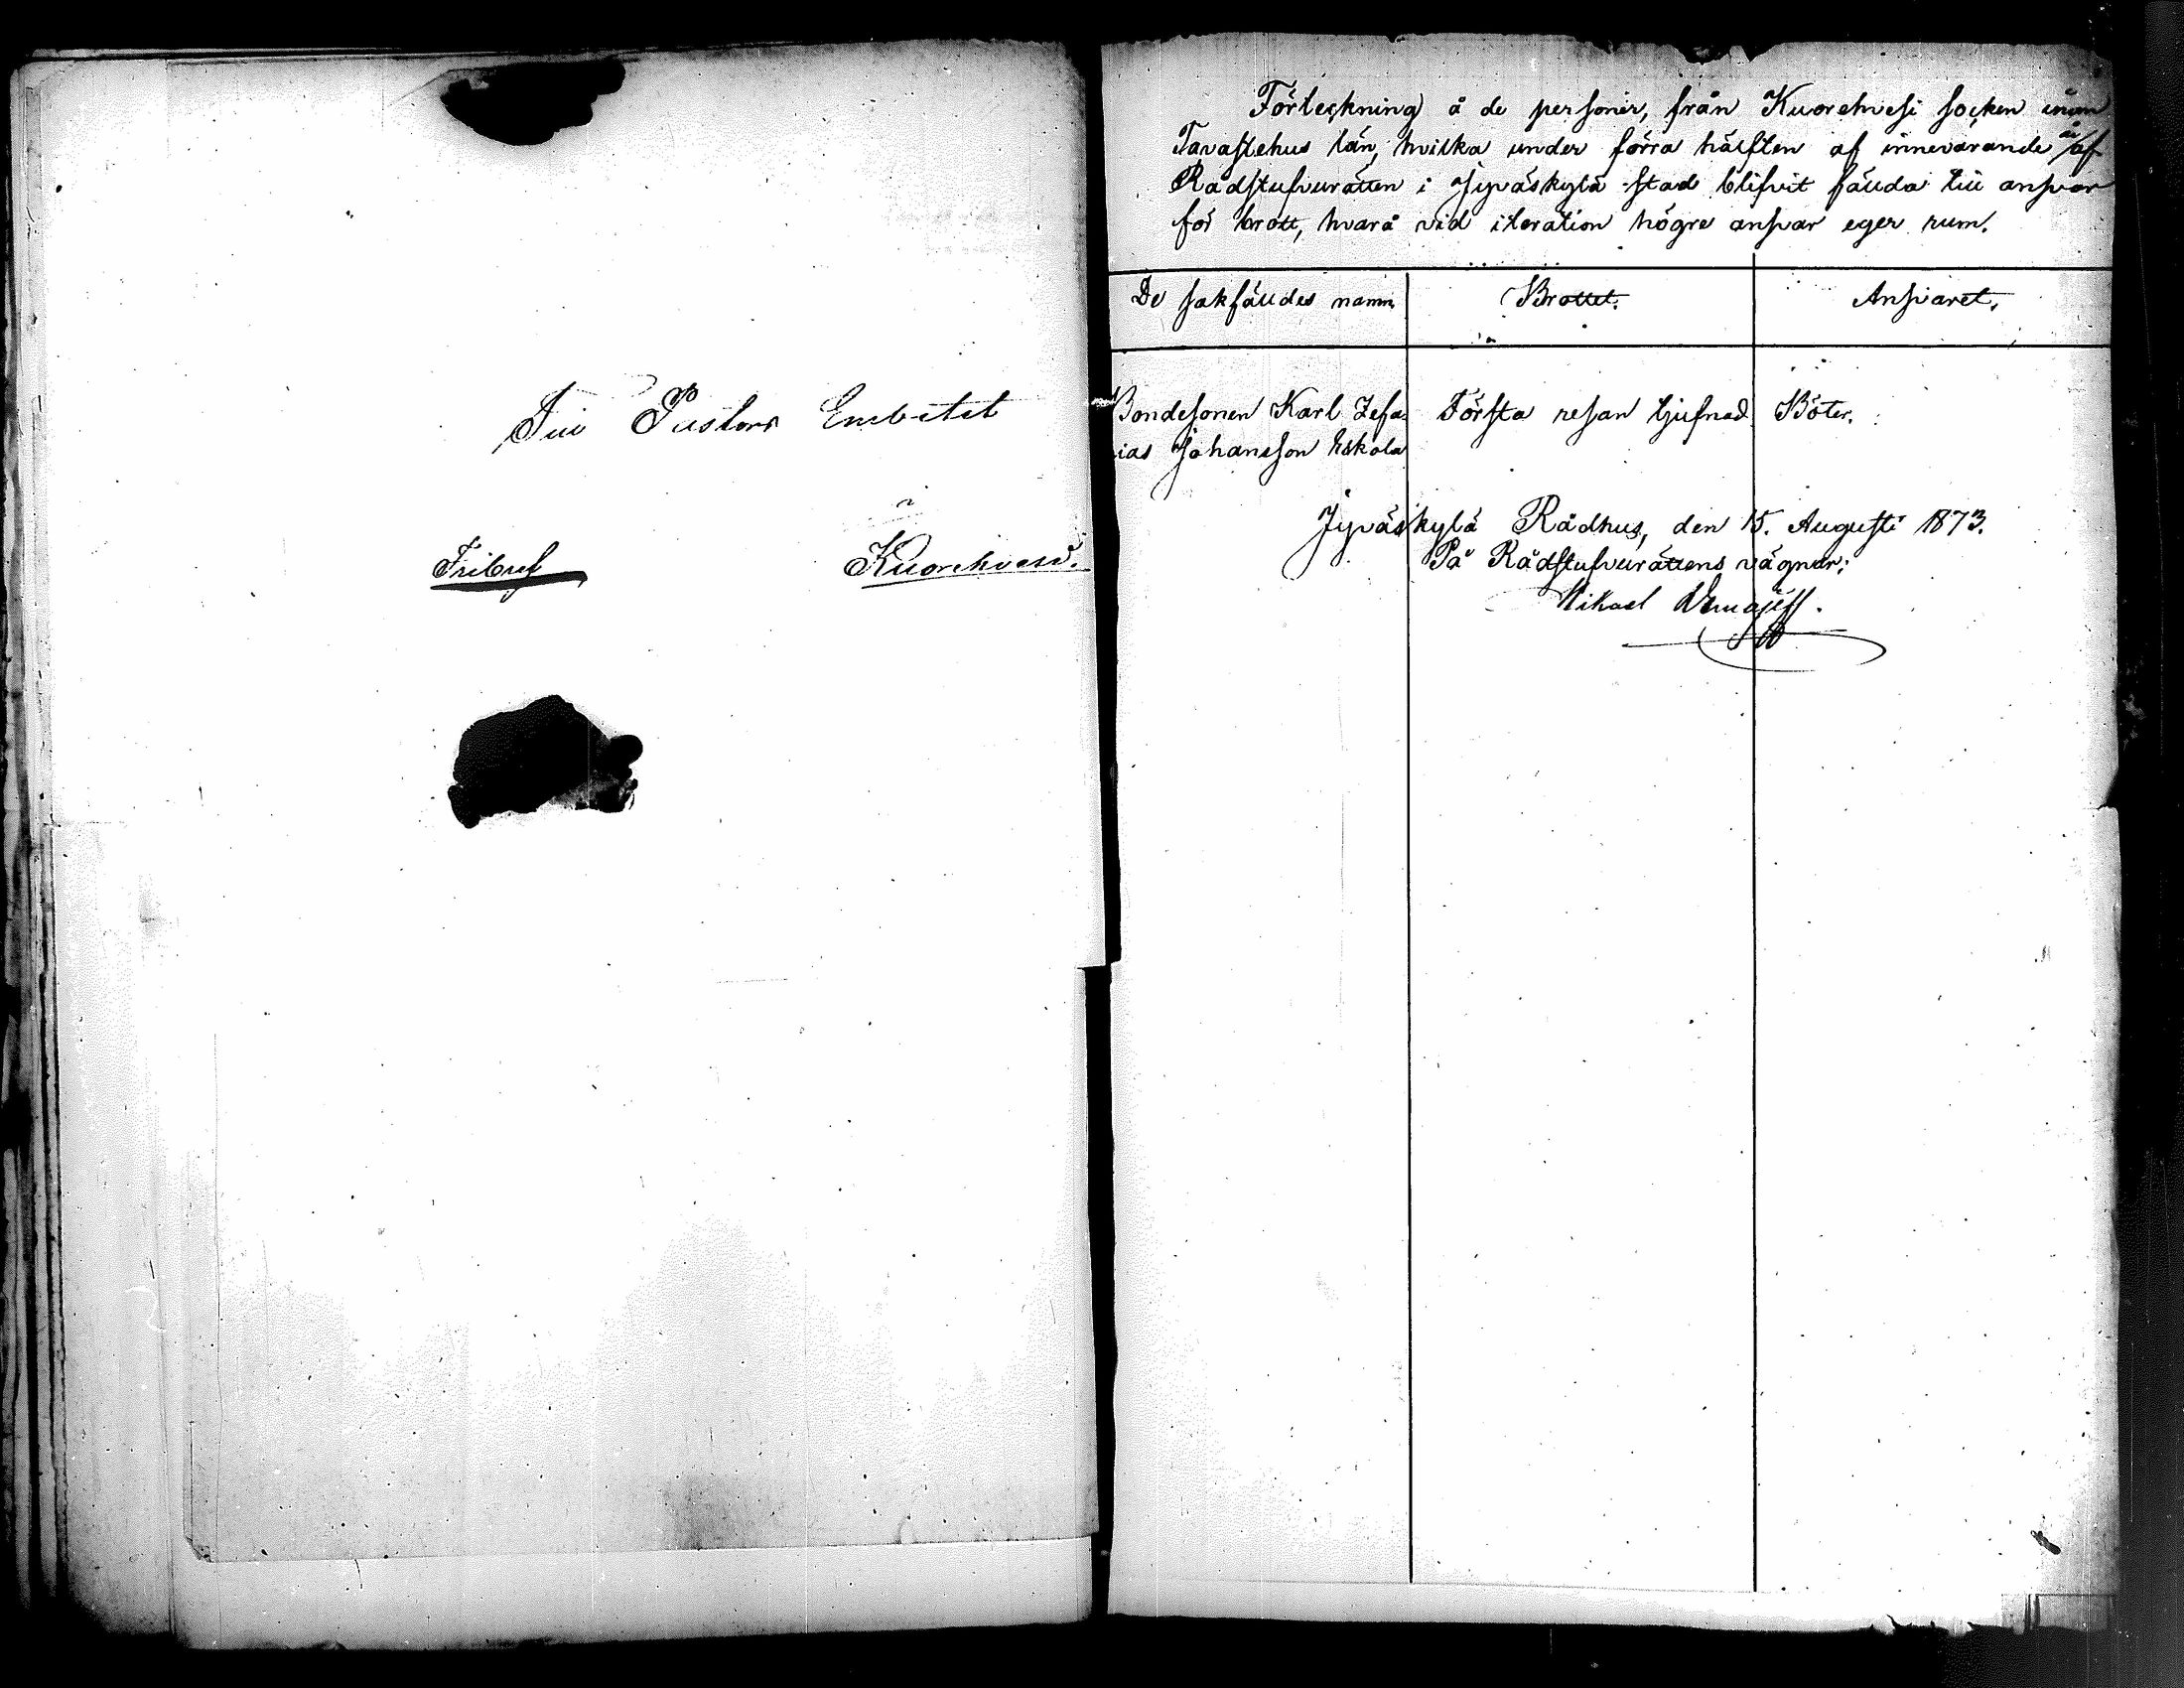 Till Pastors Embetet
Kuorehvesi.
Fribref
Förteckning å de personer, från Kuorehvesi socken inom
Tavastehus län, hvilka under förra hälften af innevarande år af
Rådstufvurätten i Jyväskylä stad blifvit fällda till ansvar
för brott, hvarå vid iteration högre ansvar eger rum.
De sakfälldes namn. Brottet. Ansvaret.
Bondesonen Karl Zefa- Första resan tjufnad. Böter.
nias Johansson Eskola
Jyväskylä Rådhus, den 15. Augusti 1873.
På Rådstufvurättens vägnar:
Mikael